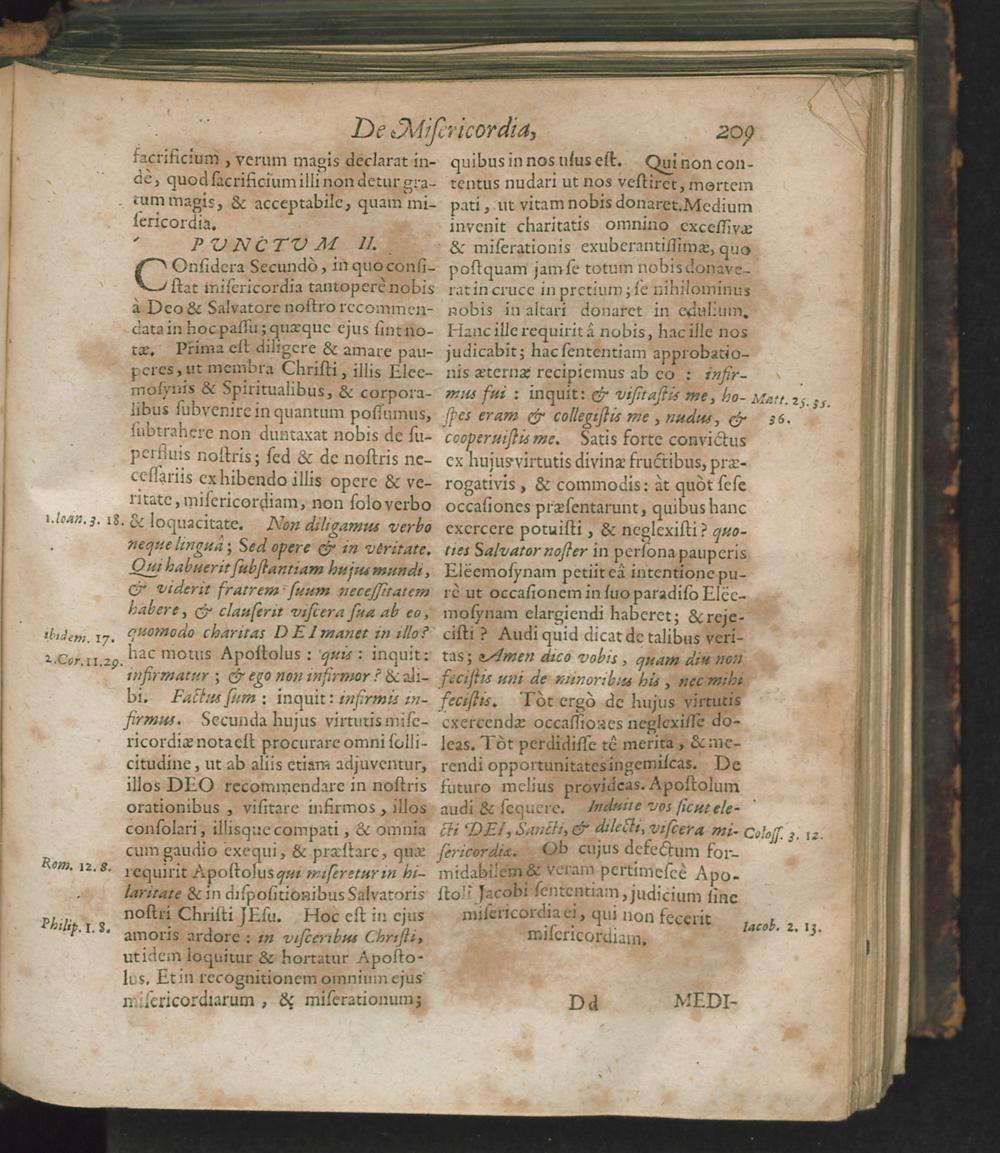 De Miſericordia,
209
ſacrificium, verum magis declarat in-
dè, quod ſacrificium illi non detur gra-
tum magis, & acceptabile, quam mi-
ſericordia.
PUNCTUM II.
COnſidera Secundò, in quo conſi-
ſtat miſericordia tantoperè nobis
à Deo & Salvatore noſtro recommen-
data in hoc paſſu; quæque ejus ſint no-
tæ. Prima eſt diligere & amare pau-
peres, ut membra Chriſti, illis Elee-
moſynis & Spiritualibus, & corpora-
libus ſubvenire in quantum poſſumus,
ſubtrahere non duntaxat nobis de ſu-
perfluis noſtris; ſed & de noſtris ne-
ceſſariis exhibendo illis opere & ve-
ritate, miſericordiam, non ſolo verbo
1. Ioan. 3. 18.
& loquacitate. Non diligamus verbo
neque linguâ; Sed opere & in veritate.
Qui habuerit ſubſtantiam hujus mundi,
& viderit fratrem ſuum neceſſitatem
habere, & clauſerit viſcera ſua ab eo,
ibidem. 17.
quomodo charitas DEI manet in illo?
2. Cor. 11. 29.
hac motus Apoſtolus: quis: inquit:
infirmatur; & ego non infirmor? & ali-
bi. Factus ſum: inquit: infirmis in-
firmus. Secunda hujus virtutis miſe-
ricordiæ nota eſt procurare omni ſolli-
citudine, ut ab aliis etiam adjuventur,
illos DEO recommendare in noſtris
orationibus, viſitare infirmos, illos
conſolari, illisque compati, & omnia
cum gaudio exequi, & præſtare, quæ
Rom. 12. 8.
requirit Apoſtolus qui miſeretur in hi-
laritate & in diſpoſitionibus Salvatoris
noſtri Chriſti JEſu. Hoc eſt in ejus
Philip. 1. 8.
amoris ardore: in viſceribus Chriſti,
ut idem loquitur & hortatur Apoſto-
lus. Et in recognitionem omnium ejus
miſericordiarum, & miſerationum;
quibus in nos uſus eſt. Qui non con-
tentus nudari ut nos veſtiret, mortem
pati, ut vitam nobis donaret. Medium
invenit charitatis omnino exceſſivæ
& miſerationis exuberantiſſimæ, quo
poſtquam jam ſe totum nobis donave-
rat in cruce in pretium; ſe nihilominus
nobis in altari donaret in edulium.
Hanc ille requirit â nobis, hac ille nos
judicabit; hac ſententiam approbatio-
nis æternæ recipiemus ab eo: infir-
mus fui: inquit: & viſitaſtis me, ho-
Matt. 25. 35.
36.
ſpes eram & collegiſtis me, nudus, &
cooperuiſtis me. Satis forte convictus
ex hujus virtutis divinæ fructibus, præ-
rogativis, & commodis: àt quòt ſeſe
occaſiones præſentarunt, quibus hanc
exercere potuiſti, & neglexiſti? quo-
ties Salvator noſter in perſona pauperis
Elëemoſynam petiit eâ intentione pu-
rè ut occaſionem in ſuo paradiſo Elëe-
moſynam elargiendi haberet; & reje-
ciſti? Audi quid dicat de talibus veri-
tas; Amen dico vobis, quam diu non
feciſtis uni de minoribus his, nec mihi
feciſtis. Tòt ergò de hujus virtutis
exercendæ occaſſiones neglexiſſe do-
leas. Tòt perdidiſſe tê merita, & me-
rendi opportunitates ingemiſcas. De
futuro melius provideas. Apoſtolum
audi & ſequere. Induite vos ſicut ele-
cti DEI, Sancti, & dilecti, viſcera mi-
Coloſſ. 3. 12.
ſericordiæ. Ob cujus defectum for-
midabilem & veram pertimeſcè Apo-
ſtoli Jacobi ſententiam, judicium ſine
miſericordia ei, qui non fecerit
Iacob. 2. 13.
miſericordiam.
Dd
MEDI-